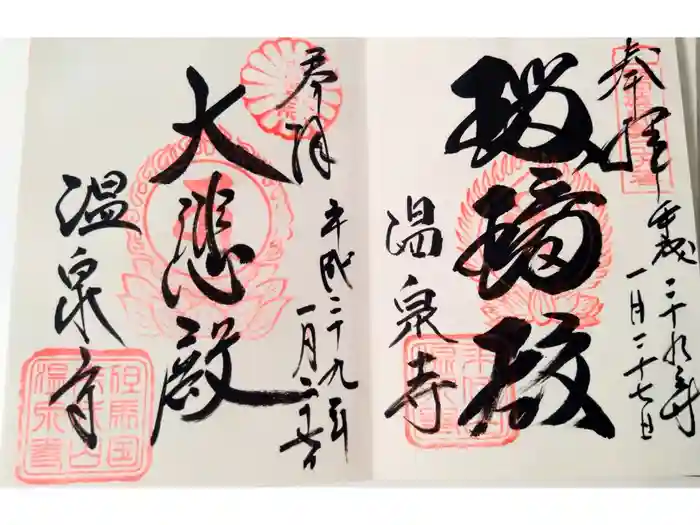 奉拝
平成二十九年
一月二十七日
瑠璃殿
温泉寺
奉拝
平成二十九年
一月二十七日
大悲殿
温泉寺